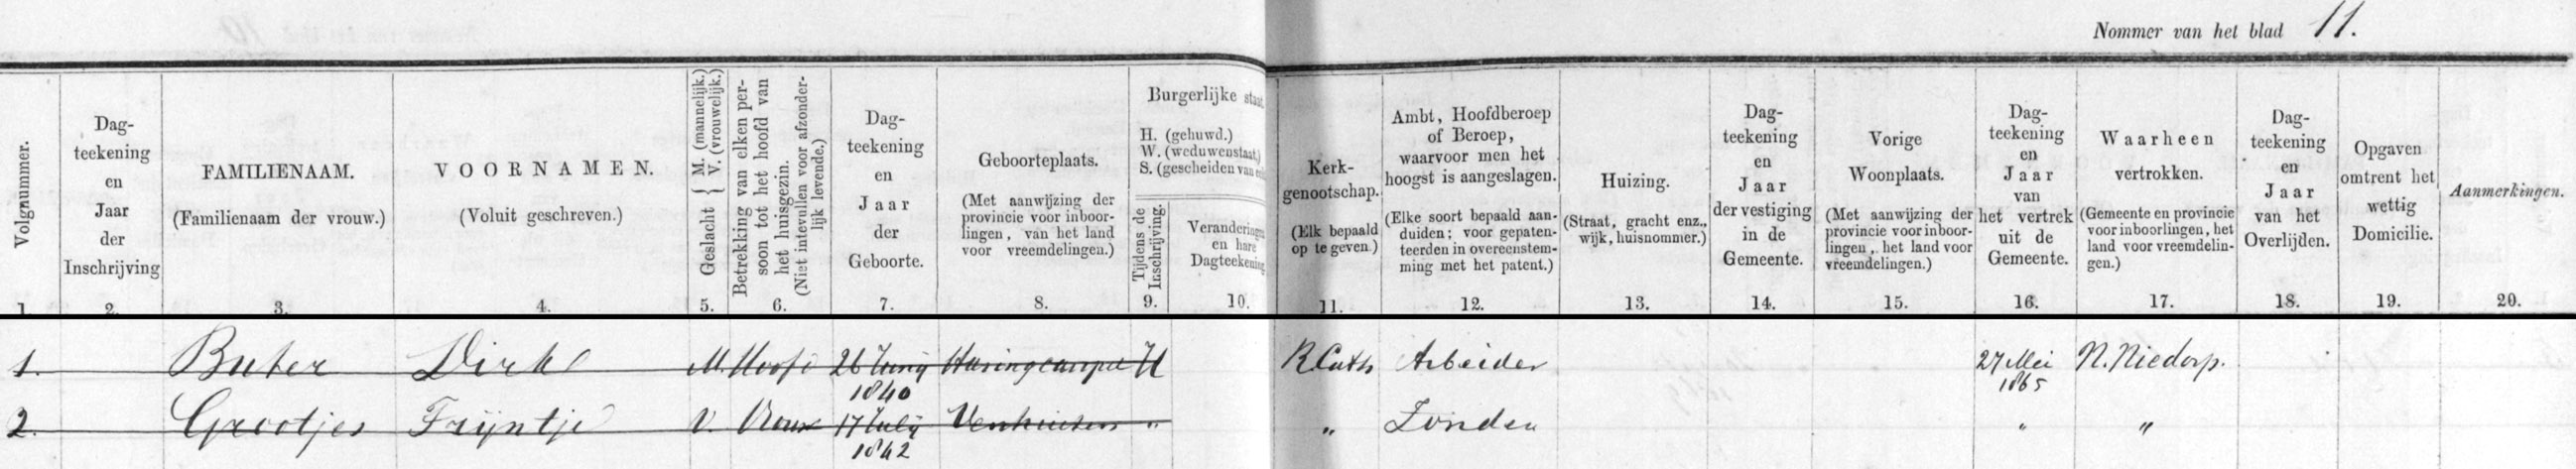 Nommer van het blad 11.
Volgnummer.
Dag-
teekening
en
Jaar
der
Inschrijving
FAMILIENAAM.
(Familienaam der vrouw.)
VOORNAMEN.
(Voluit geschreven.)
Geslacht { M. (mannelijk.) V. (vrouwelijk.)
Betrekking van elken per-
soon tot het hoofd van
het huisgezin.
(Niet intevullen voor afzonder-
lijk levende.)
Dag-
teekening
en
Jaar
der
Geboorte.
Geboorteplaats.
(Met aanwijzing der
provincie voor inboor-
lingen, van het land
voor vreemdelingen.)
Burgerlijke staat
H. (gehuwd.)
W. (weduwenstaat.)
S. (gescheiden van
Tijdens de
Inschrijving.
Veranderingen
en hare
Dagteekening
Kerk-
genootschap.
(Elk bepaald
op te geven.)
Ambt, Hoofdberoep
of Beroep,
waarvoor men het
hoogst is aangeslagen.
(Elke soort bepaald aan-
duiden; voor gepaten-
teerden in overeenstem-
ming met het patent.)
Huizing.
(Straat, gracht enz.,
wijk, huisnommer.)
Dag-
teekening
en
Jaar
der vestiging
in de
Gemeente.
Vorige
Woonplaats.
(Met aanwijzing der
provincie voor inboor-
lingen, het land voor
vreemdelingen.)
Dag-
teekening
en
Jaar
van
het vertrek
uit de
Gemeente.
Waarheen
vertrokken.
(Gemeente en provincie
voor inboorlingen, het
land voor vreemdelin-
gen.)
Dag-
teekening
en
Jaar
van het
Overlijden.
Opgaven
omtrent het
wettig
Domicilie.
Aanmerkingen.
1. 2. 3. 4. 5. 6. 7. 8. 9. 10. 11. 12. 13. 14. 15. 16. 17. 18. 19. 20.
1. Buter Dirk M. Hoofd 26 Junij 1840 Haringcarspel H R Cath Arbeider 27 Mei 1865 N. Niedorp.
2. Grootjes Trijntje V. Vrouw 17 Julij 1842 Venhuizen " " Zonder " "